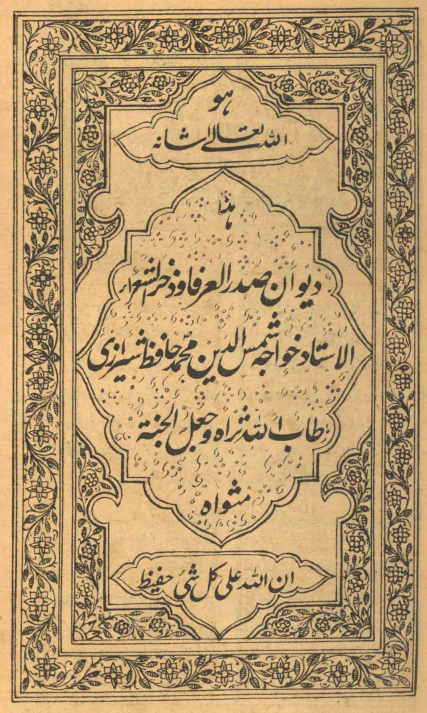 هو
الله تعالی شانه
هذا
دیوان صدر العرفا و فخر الشعراء
الاستاد خواجه شمس الدین محمد حافظ شیرازی
طاب الله ثراه وجعل الجنة
مثواه
ان الله علی کل شیء حفیظ